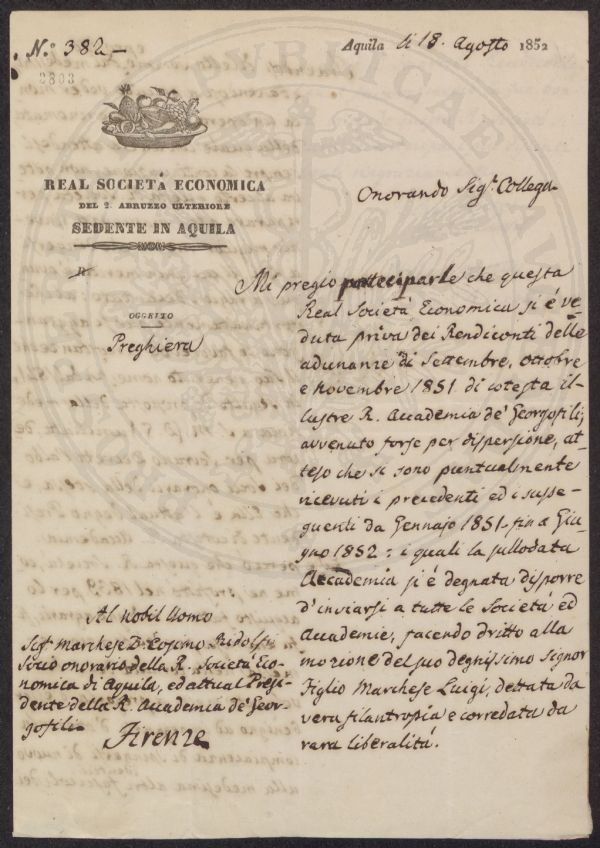 N.º 382 -
Aquila li 18. Agosto 1852
2803
REAL SOCIETÁ ECONOMICA
DEL 2. ABRUZZO ULTERIORE
SEDENTE IN AQUILA
OGGETTO
Preghiera
Onorando Sig.r Collega
Mi pregio parteciparle che questa
Real Societá Economica si é ve-
duta priva dei Rendiconti delle
adunanze di Settembre, ottobre
e novembre 1851 di cotesta il-
lustre R. Accademia de' Georgofili,
avvenuto forse per dispersione, at-
teso che si sono puntualmente
ricevuti i precedenti ed i susse-
guenti da Gennajo 1851 fin a Giu-
gno 1852: i quali la sullodata
Accademia si é degnata disporre
d'inviarsi a tutte le Societá ed
Accademie, facendo dritto alla
mozione del suo degnissimo signor
Figlio Marchese Luigi, dettata da
vera filantropia e corredata da
rara liberalitá.
Al Nobil Uomo
Sig.r Marchese D. Cosimo Ridolfi
Socio onorario della R. Societá Eco-
nomica di Aquila, ed attual Presi-
dente della R. Accademia de' Geor-
gofili
Firenze